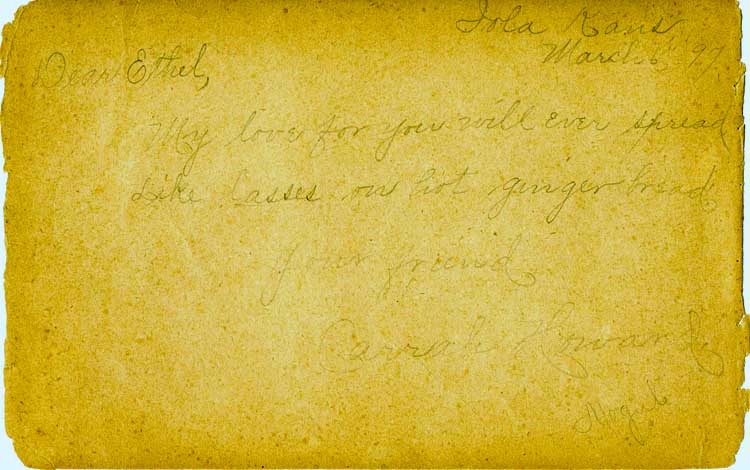 Iola Kans
March 6, '97
Dear Ethel,
My love for you will ever spread
Like lasses on hot ginger bread
Your friend
Carrah Howard